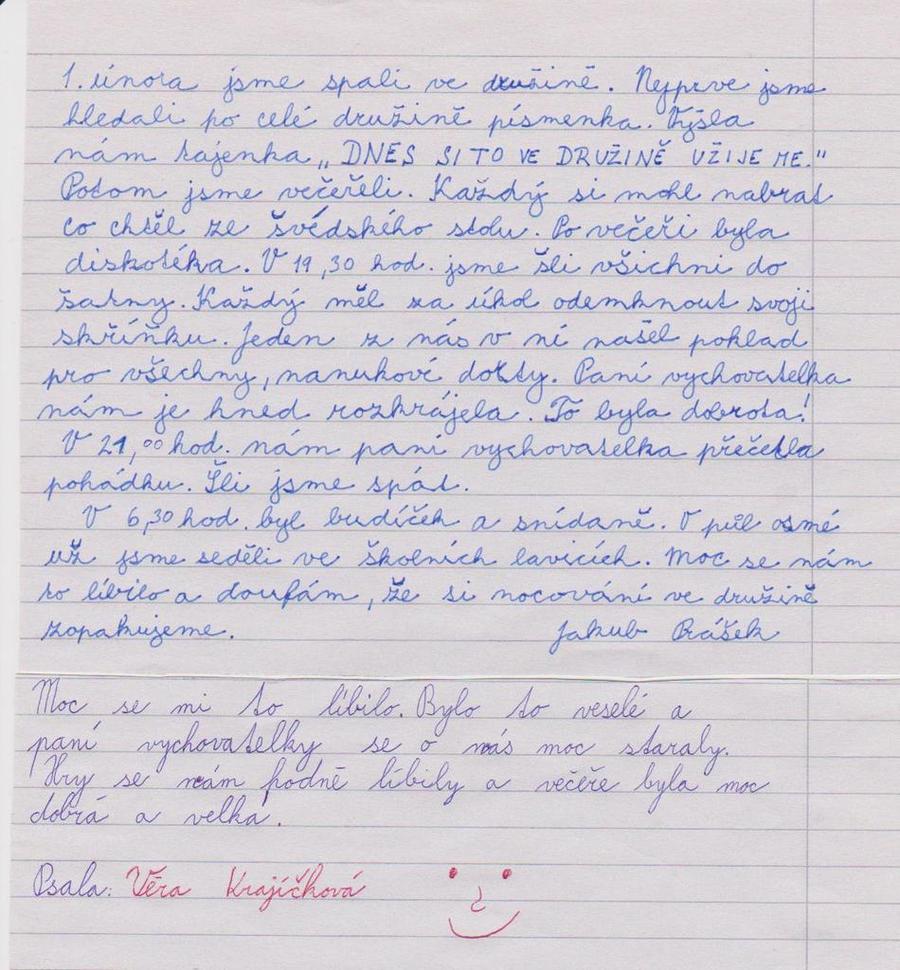 1. února jsme spali ve družině. Nejprve jsme
hledali po celé družině písmenka. Vyšla
nám tajenka „DNES SI TO VE DRUŽINĚ UŽIJEME."
Potom jsme večeřeli. Každý si mohl nabrat
co chtěl ze švédského stolu. Po večeři byla
diskotéka. V 19,30 hod. jsme šli všichni do
šatny. Každý měl za úkol odemknout svoji
skříňku. Jeden z nás v ní našel poklad
pro všechny, nanukové dorty. Paní vychovatelka
nám je hned rozkrájela. To byla dobrota!
V 21,00 hod. nám paní vychovatelka přečetla
pohádku. Šli jsme spát.
V 6,30 hod. byl budíček a snídaně. V půl osmé
už jsme seděli ve školních lavicích. Moc se nám
to líbilo a doufám, že si nocování ve družině
zopakujeme. Jakub Prášek
Moc se mi to líbilo. Bylo to veselé a
paní vychovatelky se o nás moc staraly.
Hry se nám hodně líbily a večeře byla moc
dobrá a velká.
Psala: Věra Krajíčková